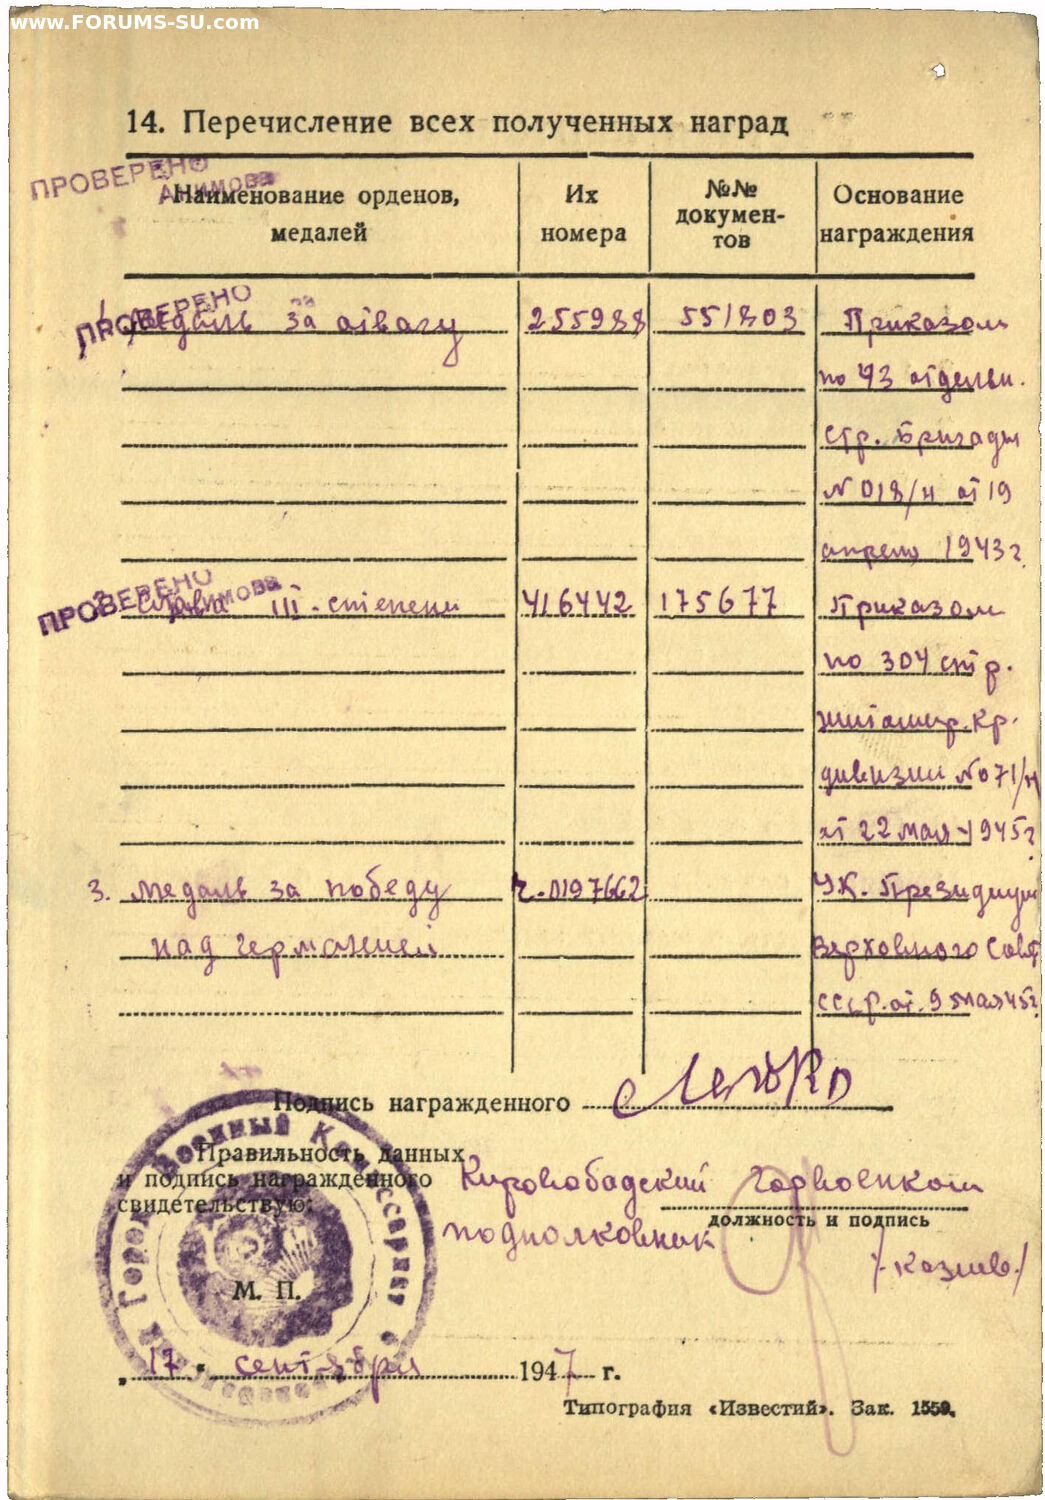 www.FORUMS-SU.com
14. Перечисление всех полученных наград
ПРОВЕРЕНО
Наименование орденов, медалей
Их номера
№№ докумен-тов
Основание награждения
ПРОВЕРЕНО
1. Медаль за отвагу 255988 551803 Приказом
по 43 отдельн.
стр. Бригады
№ 018/н от 19
апреля 1943 г
ПРОВЕРЕНО
2. Слава III-степени 416442 175677 Приказом
по 304 стр.
житомир. кр.
дивизии № 071/н
от 22 мая-1945 г.
3. медаль за победу 0197662 Ук. Президиум
над германией Верховного Сов
СССР. от. 9 мая 45 г.
Подпись награжденного
Правильность данных
и подпись награжденного
свидетельствую:
Кировобадский горвоенком
должность и подпись
подполковник
М. П.
Военный Комиссариат
„17" сентября 1947 г.
Типография «Известий». Зак. 1559.